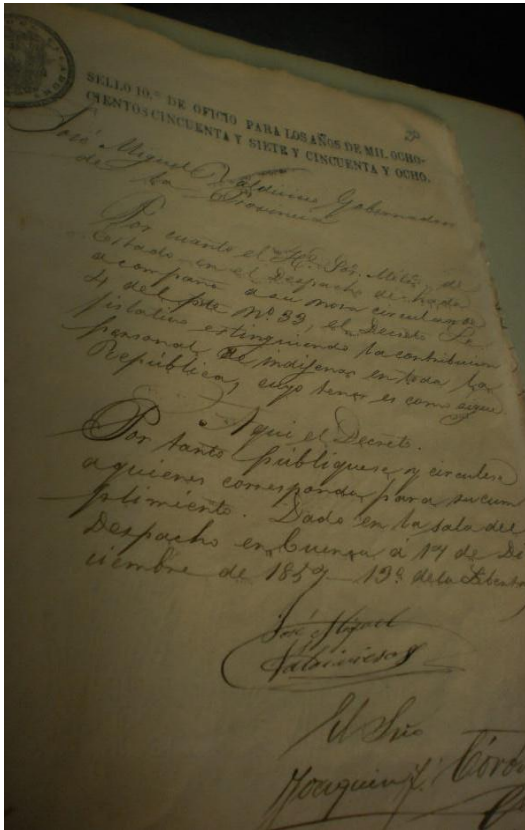 SELLO 10.º DE OFICIO PARA LOS AÑOS DE MIL OCHO-
CIENTOS CINCUENTA Y SIETE Y CINCUENTA Y OCHO.
José Miguel Valdivieso Gobernador
de la Provincia
Por cuanto el H. Sor. Mtro. de
Estado en el Despacho de Hacda.
acompaña a su nota circular de
del pte. Nº 33, el Decreto Le
jislativo estinguiendo la contribucion
personal de indíjenas en toda la
República, cuyo tenor es como sigue.
Aqui el Decreto.
Por tanto publíquese y circulese
a quienes corresponda para su cum
plimiento. Dado en la sala del
Despacho en Cuenca a 17 de De
ciembre de 1857 13º de la Liberta
José Miguel
Valdivieso
El Srio
Joaquin F. Córdo